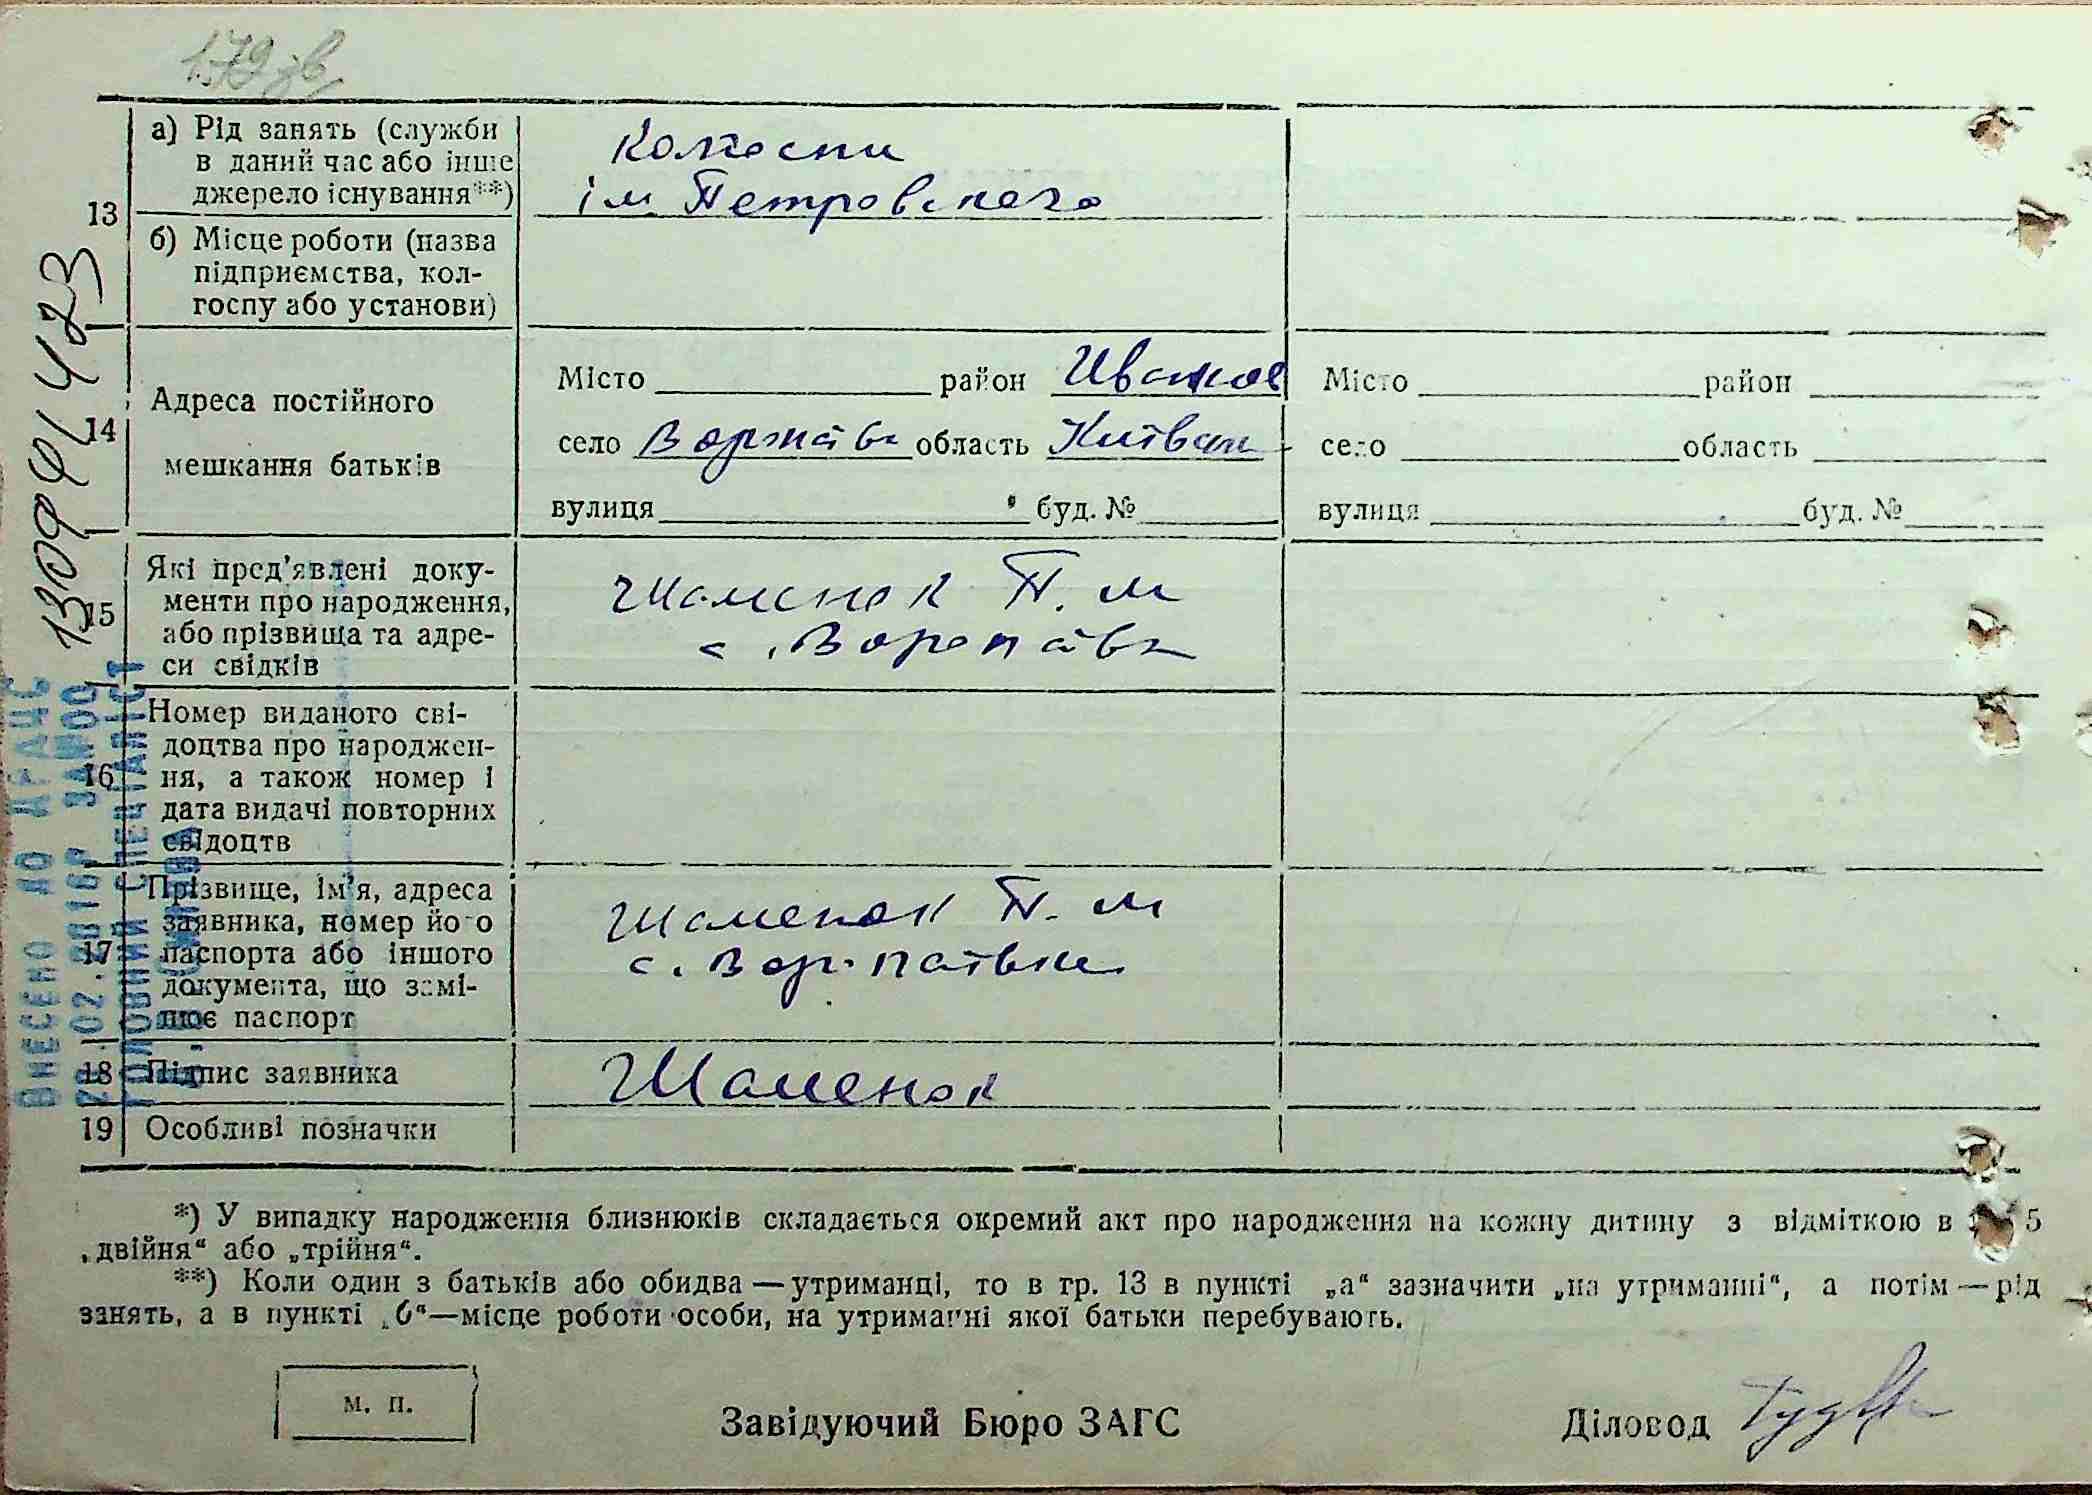 179 зв
а) Рід занять (служби
в даний час або інше
джерело існування**)
Колгоспи
ім Петровского
13
б) Місце роботи (назва
підприємства, кол-
госпу або установи)
14
Адреса постійного
мешкання батьків
Місто район Иванков
село область Київськ
вулиця буд. №
Місто район
село область
вулиця буд. №
15
Які пред'явлені доку-
менти про народження,
або прізвища та адре-
си свідків
Шаменок П. М
с.
16
Номер виданого сві-
доцтва про народжен-
ня, а також номер і
дата видачі повторних
свідоцтв
17
Прізвище, ім'я, адреса
заявника, номер його
паспорта або іншого
документа, що замі-
нює паспорт
Шаменок П. М
с.
18 Підпис заявника
Шаменок
19 Особливі позначки
*) У випадку народження близнюків складається окремий акт про народження на кожну дитину з відміткою в 5
„двійня“ або „трійня“.
**) Коли один з батьків або обидва — утриманці, то в гр. 13 в пункті „а“ зазначити „на утриманні“, а потім — рід
занять, а в пункті „б“—місце роботи особи, на утриманні якої батьки перебувають.
м. п.
Завідуючий Бюро ЗАГС
Діловод
ВНЕСЕНО ДО ДРАЦС
ГОЛОВНИЙ СПЕЦІАЛІСТ